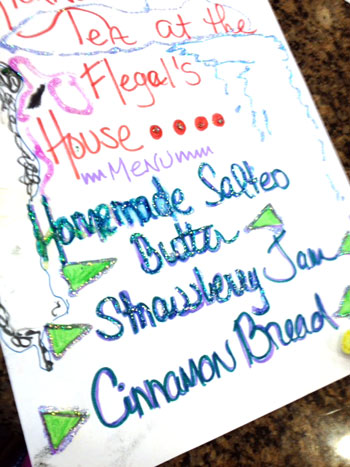 Tea at the
Flegal's
House ....
MENU
Homemade Salted
Butter
Strawberry Jam
Cinnamon Bread